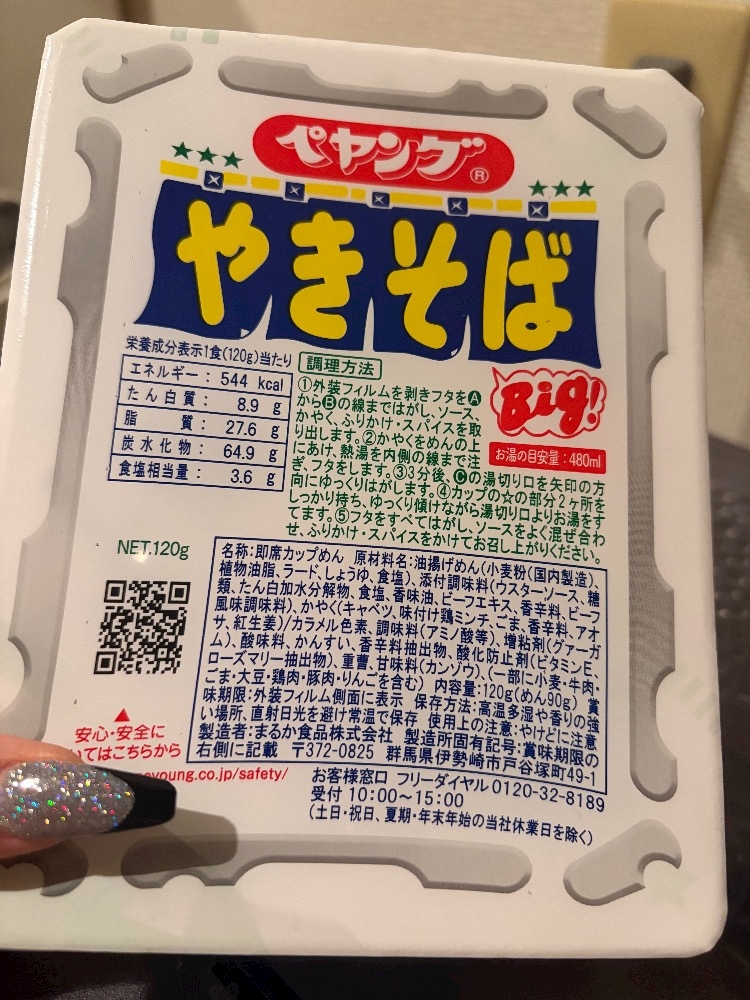 ペヤング®
やきそば
Big!
お湯の目安量:480ml
栄養成分表示1食(120g)当たり
エネルギー: 544 kcal
たん白質: 8.9 g
脂質: 27.6 g
炭水化物: 64.9 g
食塩相当量: 3.6 g
調理方法
①外装フィルムを剥きフタをA
からBの線まではがし、ソース、
かやく、ふりかけ・スパイスを取
り出します。②かやくをめんの上
にあけ、熱湯を内側の線まで注
ぎ、フタをします。③3分後、Cの湯切り口を矢印の方
向にゆっくりはがします。④カップの☆の部分2ヶ所を
しっかり持ち、ゆっくり傾けながら湯切り口よりお湯をす
てます。⑤フタをすべてはがし、ソースをよく混ぜ合わ
せ、ふりかけ・スパイスをかけてお召し上がりください。
NET.120g
名称:即席カップめん 原材料名:油揚げめん(小麦粉(国内製造)、
植物油脂、ラード、しょうゆ、食塩)、添付調味料(ウスターソース、糖
類、たん白加水分解物、食塩、香味油、ビーフエキス、香辛料、ビーフ
風味調味料)、かやく(キャベツ、味付け鶏ミンチ、ごま、香辛料、アオ
サ、紅生姜)/カラメル色素、調味料(アミノ酸等)、増粘剤(グァーガ
ム)、酸味料、かんすい、香辛料抽出物、酸化防止剤(ビタミンE、
ローズマリー抽出物)、重曹、甘味料(カンゾウ)、(一部に小麦・牛肉・
ごま・大豆・鶏肉・豚肉・りんごを含む) 内容量:120g(めん90g) 賞
味期限:外装フィルム側面に表示 保存方法:高温多湿や香りの強
い場所、直射日光を避け常温で保存 使用上の注意:やけどに注意
製造者:まるか食品株式会社 製造所固有記号:賞味期限の
右側に記載 〒372-0825 群馬県伊勢崎市戸谷塚町49-1
安心・安全に
いてはこちらから
young.co.jp/safety/
お客様窓口 フリーダイヤル0120-32-8189
受付 10:00～15:00
(土日・祝日、夏期・年末年始の当社休業日を除く)